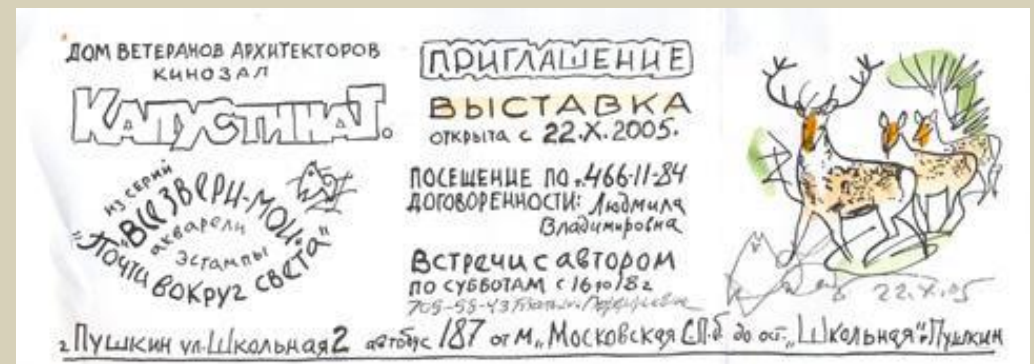 ДОМ ВЕТЕРАНОВ АРХИТЕКТОРОВ
КИНОЗАЛ
КАПУСТИНА Т.
из серий
"ВСЕ ЗВЕРИ-МОИ"
акварели
эстампы
"Почти вокруг света"
ПРИГЛАШЕНИЕ
ВЫСТАВКА
открыта с 22.X.2005.
ПОСЕЩЕНИЕ ПО 466-11-84
ДОГОВОРЕННОСТИ: Людмила
Владимировна
Встречи с автором
по субботам с 16 до 18 г
705-55-43
22.X.05
г. Пушкин ул. Школьная 2 автобус 187 от м. „Московская СПб до ост. „Школьная" г. Пушкин